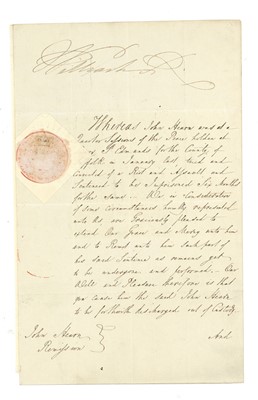 William R.
Whereas John Mearn was at a
Quarter Sessions of the Peace holden at
St. Edmunds for the County of
folk in January last, tried and
convicted of a Riot and Assault and
Sentenced to be Imprisoned Six Months
for the same. We in Consideration
of some circumstances humbly represented
unto Us, are Graciously pleased to
extend Our Grace and Mercy unto him
and to Remit unto him such part of
his said Sentence as remains yet
to be undergone and performed. Our
Will and Pleasure therefore is that
you cause him the said John Mearn
to be forthwith discharged out of Custody.
And
John Mearn
Remission